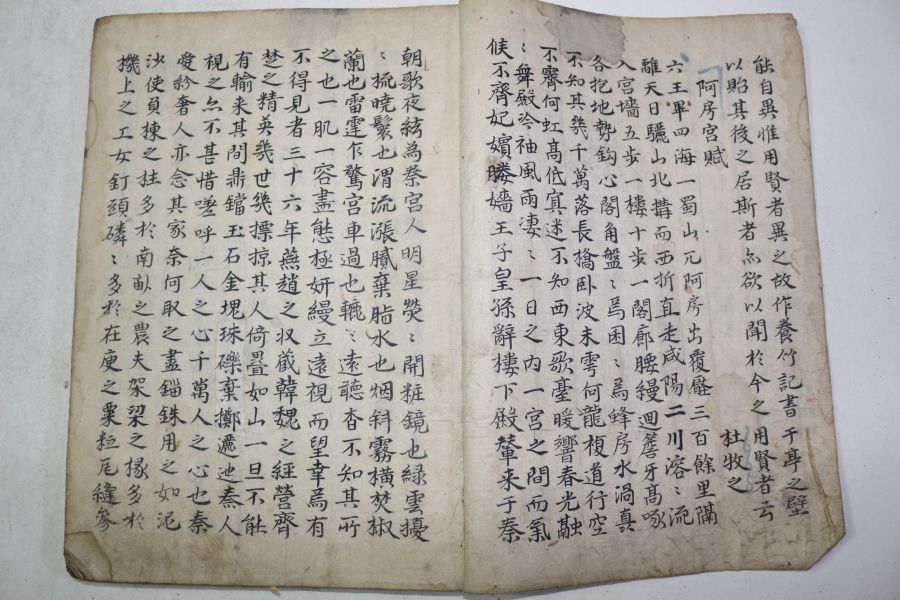 能自異惟用賢者異之故作養竹記書于亭之壁
以貽其後之居斯者亦欲以聞於今之用賢者云
阿房宮賦 杜牧之
六王畢四海一蜀山兀阿房出覆壓三百餘里隔
離天日驪山北搆而西折直走咸陽二川溶〻流
入宮墻五步一樓十步一閣廊腰縵迴簷牙高啄
各抱地勢鈎心閣角盤〻焉囷〻焉蜂房水渦真
不知其幾千萬落長橋臥波未雩何龍複道行空
不霽何虹高低冥迷不知西東歌臺暖響春光融
〻舞殿冷袖風雨凄〻一日之內一宮之間而氣
候不齊妃嬪媵嬙王子皇孫辭樓下殿輦来于秦
朝歌夜絃為秦宮人明星熒〻開粧鏡也緑雲擾
〻梳曉鬟也渭流漲膩棄脂水也烟斜霧橫焚椒
蘭也雷霆乍驚宮車過也轆〻遠聽杳不知其所
之也一肌一容盡態極妍縵立遠視而望幸焉有
不得見者三十六年燕趙之収蔵韓魏之經營齊
楚之精英幾世幾摽掠其人倚疊如山一旦不能
有輸来其間鼎鐺玉石金塊珠礫棄擲邐迤秦人
視之亦不甚惜嗟呼一人之心千萬人之心也秦
愛紛奢人亦念其家奈何取之盡錙銖用之如泥
沙使負棟之柱多於南畝之農夫架梁之椽多於
機上之工女釘頭磷〻多於在庾之粟粒尾縫參